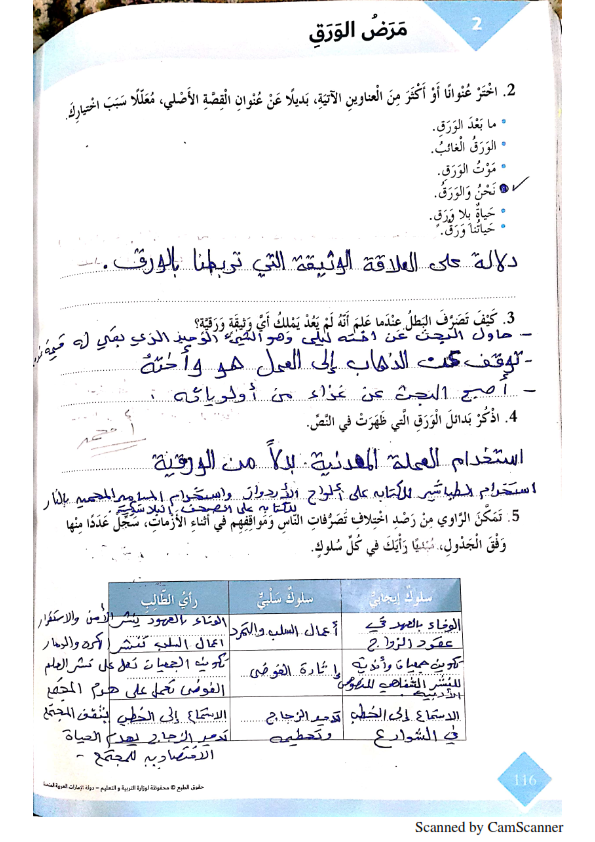 2
مَرَضُ الوَرَقِ
2. اخْتَرْ عُنْوانًا أَوْ أَكْثَرَ مِنَ الْعَناوينِ الآتِيَةِ، بَديلًا عَنْ عُنْوانِ الْقِصَّةِ الأَصْلي، مُعَلِّلًا سَبَبَ اخْتِيارِكَ.
• ما بَعْدَ الوَرَقِ.
• الوَرَقُ الْغائبُ.
• مَوْتُ الوَرَقِ.
• نَحْنُ وَالوَرَقُ.
• حَياةٌ بِلا وَرَقٍ.
• حَياتُنا وَرَقٌ.
دلالة على العلاقة الوثيقة التي تربطنا بالورق .
3. كَيْفَ تَصَرَّفَ البَطَلُ عِنْدَما عَلِمَ أَنَّهُ لَمْ يَعُدْ يَمْلِكُ أَيَّ وَثيقَةٍ وَرَقِيَّةٍ؟
- حاول البحث عن ليلى وهو الشيء الوحيد الذي بقي له قيمة
- توقف عن الذهاب إلى العمل هو وأخته
- أصبح البحث عن غذاء من أولوياته .
4. اذْكُرْ بَدائلَ الْوَرَقِ الَّتي ظَهَرَتْ في النَّصِّ.
استخدام العملة المعدنية بدلاً من الورقية
استخدام الطباشير للكتابة على ألواح الأردواز واستخدام المسامير المحمية بالنار
للكتابة على الصحف البلاستيكية
5. تَمَكَّنَ الرّاوي مِنْ رَصْدِ اخْتِلافِ تَصَرُّفاتِ النّاسِ وَمَواقِفِهِم في أَثْناءِ الأَزَماتِ، سَجِّلْ عَدَدًا مِنْها
وَفْقَ الْجَدْوَلِ، مُبْدِيًا رَأْيَكَ في كُلِّ سُلوكٍ.
سُلوكٌ إيجابِيٌّ
سُلوكٌ سَلْبِيٌّ
رَأْيُ الطّالِبِ
الوفاء بالعهد في
عقود الزواج
أعمال السلب والتمرد
الوفاء بالعهود ينشر الأمن والاستقرار
أعمال السلب تنشر والدمار
تكوين جمعيات وأندية
للنشر الشفاهي للنصوص
الأدبية
إثارة الفوضى
تكوين الجمعيات تعمل على نشر العلم
الفوضى تعمل على هدم المجتمع
الاستماع إلى الخطب
في الشوارع
تدمير الزجاج
وتحطيمه
الاستماع إلى الخطب يثقف المجتمع
تدمير الزجاج يهدم الحياة
الاقتصادية للمجتمع -
حقوق الطبع © محفوظة لوزارة التربية و التعليم - دولة الإمارات العربية المتحدة
116
Scanned by CamScanner